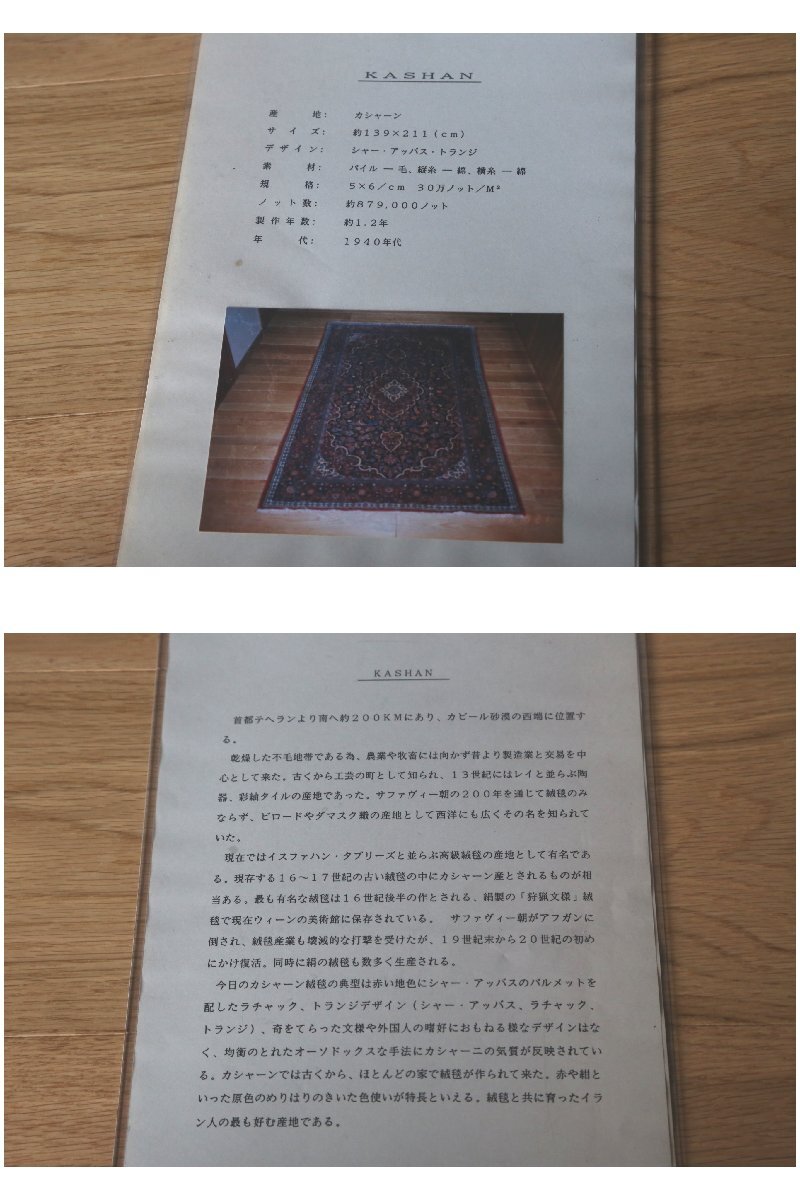 KASHAN
産地： カシャーン
サイズ： 約139×211(cm)
デザイン： シャー・アッバス・トランジ
素材： パイル ― 毛、縦糸 ― 綿、横糸 ― 綿
規格： 5×6／cm 30万ノット／M²
ノット数： 約879,000ノット
製作年数： 約1.2年
年代： 1940年代
KASHAN
首都テヘランより南へ約200KMにあり、カビール砂漠の西端に位置す
る。
乾燥した不毛地帯である為、農業や牧畜には向かず昔より製造業と交易を中
心として来た。古くから工芸の町として知られ、13世紀にはレイと並らぶ陶
器、彩紬タイルの産地であった。サファヴィー朝の200年を通じて絨毯のみ
ならず、ビロードやダマスク織の産地として西洋にも広くその名を知られて
いた。
現在ではイスファハン・タブリーズと並らぶ高級絨毯の産地として有名であ
る。現存する16～17世紀の古い絨毯の中にカシャーン産とされるものが相
当ある。最も有名な絨毯は16世紀後半の作とされる、絹製の「狩猟文様」絨
毯で現在ウィーンの美術館に保存されている。 サファヴィー朝がアフガンに
倒され、絨毯産業も壊滅的な打撃を受けたが、19世紀末から20世紀の初め
にかけ復活。同時に絹の絨毯も数多く生産される。
今日のカシャーン絨毯の典型は赤い地色にシャー・アッバスのパルメットを
配したラチャック、トランジデザイン（シャー・アッバス、ラチャック、
トランジ）、奇をてらった文様や外国人の嗜好におもねる様なデザインはな
く、均衡のとれたオーソドックスな手法にカシャーニの気質が反映されてい
る。カシャーンでは古くから、ほとんどの家で絨毯が作られて来た。赤や紺と
いった原色のめりはりのきいた色使いが特長といえる。絨毯と共に育ったイラ
ン人の最も好む産地である。